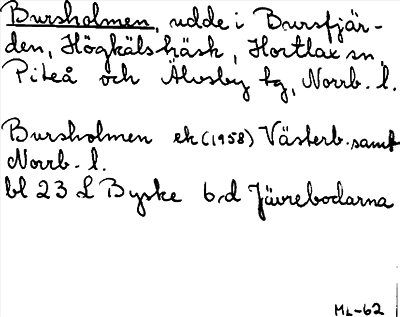 Bursholmen, udde i Bursfjär-
den, Högkälsträsk, Hortlax sn,
Piteå och Älvsby tg, Norrb. l.
Bursholmen ek (1958) Västerb. samt
Norrb. l.
bl 23 L Byske 6,d Jävrebodarna
ML-62